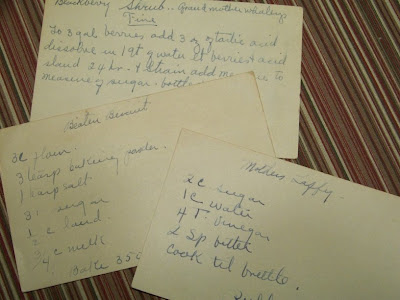 Blackberry Shrub.. Grandmother Whaley
Fine
To 3 gal berries add 3 oz tartaric acid
dissolve in 1 qt water let berries & acid
stand 24 hr. & strain add measure to
measure of sugar. bottle
Beaten Biscuit
3 C flour.
3 teasp baking powder.
1 teasp salt
sugar
lard.
milk
Bake 350
Mothers Taffy.
2 C sugar
1 C water
4 T. vinegar
2 Sp butter
Cook til brittle.